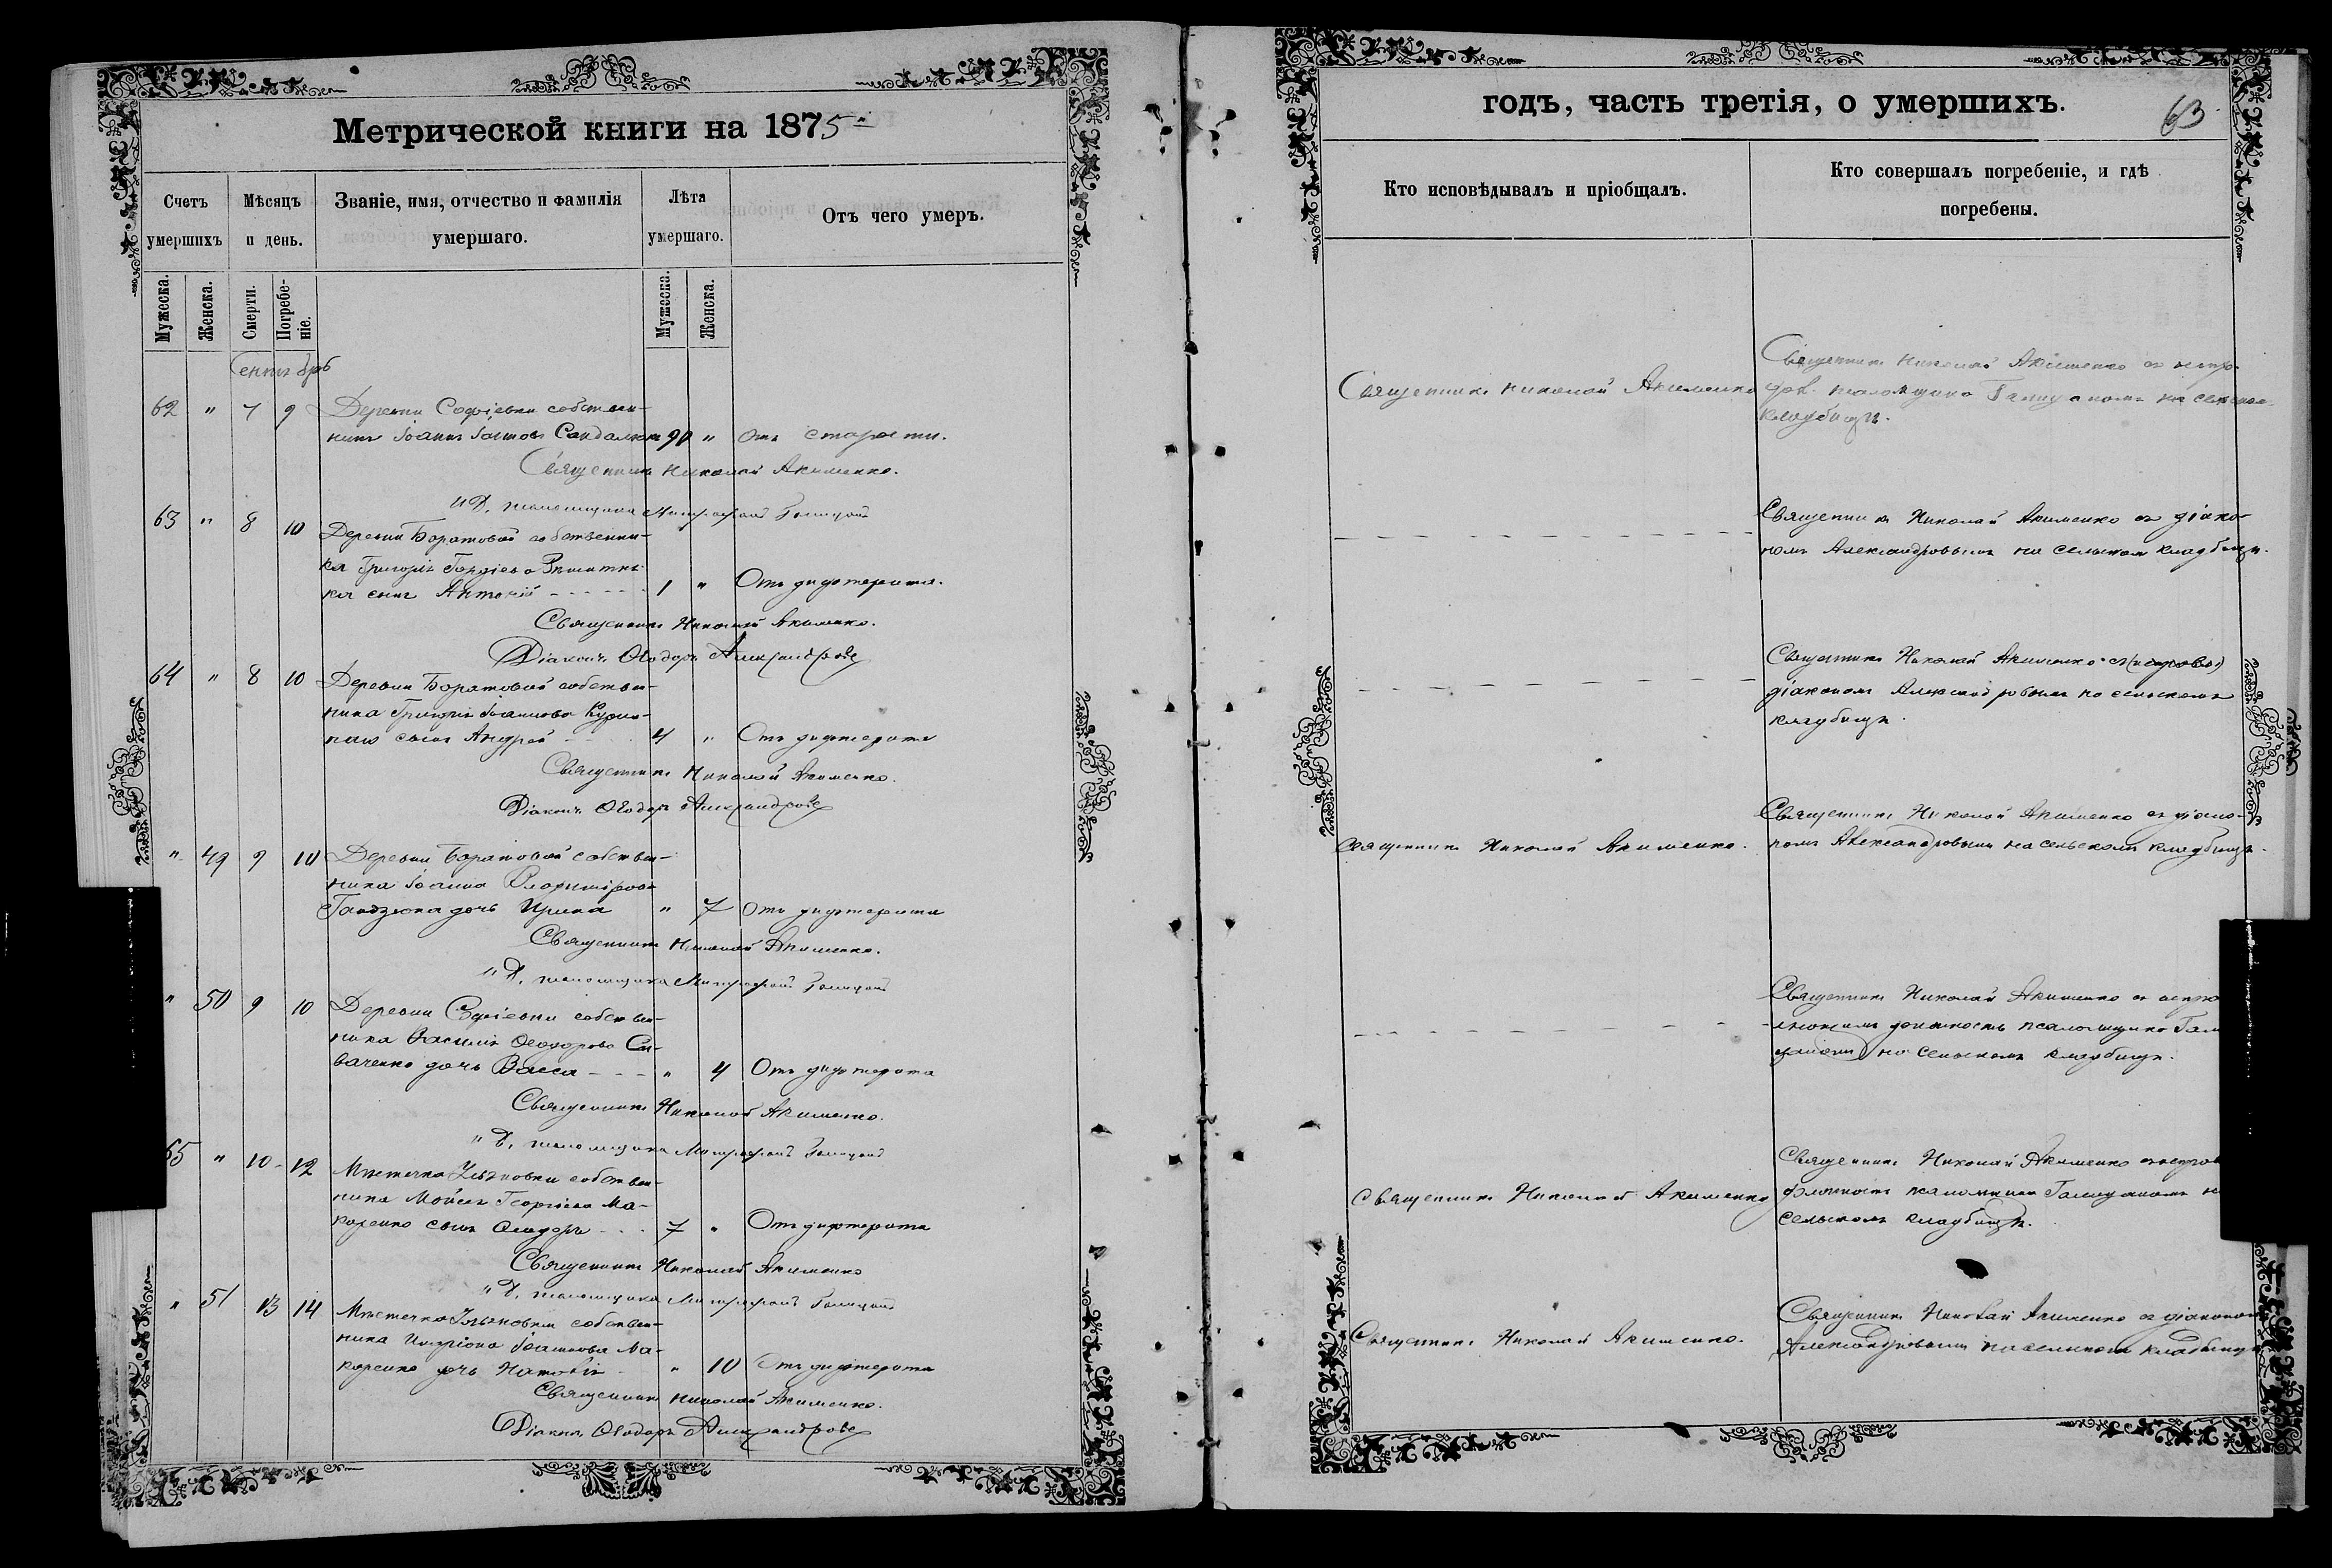 Метрической книги на 1875
Счетъ умершихъ
Мѣсяцъ и день.
Званіе, имя, отчество и фамилія умершаго.
Лѣта умершаго.
Отъ чего умеръ.
Мужеска.
Женска.
Смерти.
Погребе-
ніе.
Мужеска.
Женска.
Сентябрь
62 " 7 9 Деревни Софіевки собствен-
никъ Іоаннъ Іоанновъ 90 " Отъ старости.
Священникъ Николай Акименко.
И Д. псаломщика Митрофанъ
63 " 8 10 Деревни Баратовой собственни-
ка Григорія
ка сынъ Антоній 1 " Отъ дифтерита.
Священникъ Николай Акименко.
Діаконъ Ѳеодоръ Александровъ
64 " 8 10 Деревни Баратовой собствен-
ника Григорія Іоаннова
сынъ Андрей 4 " Отъ дифтерита
Священникъ Николай Акименко.
Діаконъ Ѳеодоръ Александровъ
" 49 9 10 Деревни Баратовой собствен-
ника Іоанна Владимірова
Гандзюка дочь Ирина " 7 Отъ дифтерита
Священникъ Николай Акименко.
И Д. псаломщика Митрофанъ
" 50 9 10 Деревни Софіевки собствен-
ника Василія Ѳеодорова Си-
ваченко дочь Васса " 4 Отъ дифтерита
Священникъ Николай Акименко.
И Д. псаломщика Митрофанъ
65 " 10 12 Мѣстечка собствен-
ника Мойсея Георгіева Ма-
каренко сынъ Ѳеодоръ 7 " Отъ дифтерита
Священникъ Николай Акименко
И Д. псаломщика Митрофанъ
" 51 13 14 Мѣстечка собствен-
ника Иларіона Іоаннова Ма-
каренко дочь Наталія " 10 Отъ дифтерита
Священникъ Николай Акименко.
Діаконъ Ѳеодоръ Александровъ
годъ, часть третія, о умершихъ.
63
Кто исповѣдывалъ и пріобщалъ.
Кто совершалъ погребеніе, и гдѣ
погребены.
Священникъ Николай Акименко
Священникъ Николай Акименко съ
псаломщика на сельскомъ
кладбищѣ.
Священникъ Николай Акименко съ діако-
номъ Александровымъ на сельскомъ кладбищѣ.
Священникъ Николай Акименко съ
діакономъ Александровымъ на сельскомъ
кладбищѣ.
Священникъ Николай Акименко.
Священникъ Николай Акименко съ діако-
номъ Александровымъ на сельскомъ кладбищѣ.
Священникъ Николай Акименко съ
должность псаломщика
на сельскомъ кладбищѣ.
Священникъ Николай Акименко
Священникъ Николай Акименко
должность псаломщика
сельскомъ кладбищѣ.
Священникъ Николай Акименко.
Священникъ Николай Акименко съ діакономъ
Александровымъ на сельскомъ кладбищѣ